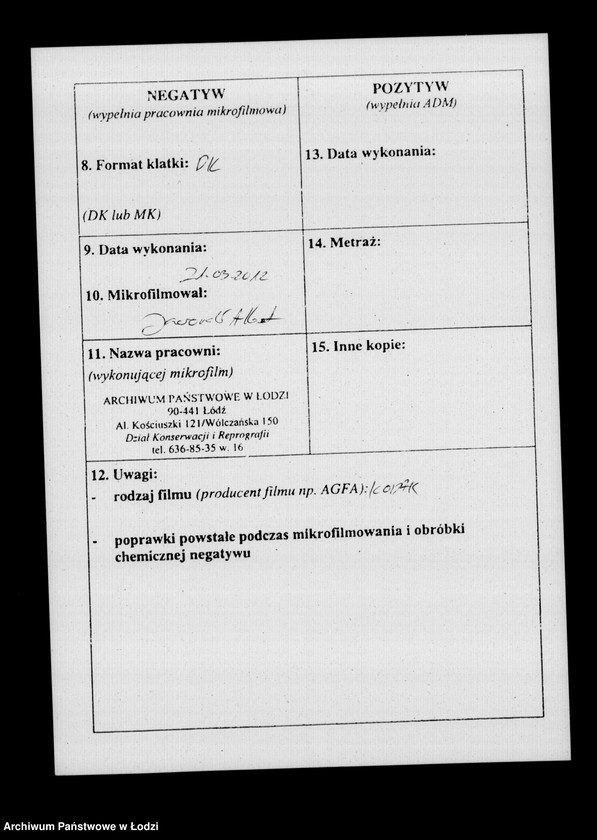 NEGATYW
(wypełnia pracownia mikrofilmowa)
8. Format klatki: DK
(DK lub MK)
9. Data wykonania:
21.03.2012
10. Mikrofilmował:
11. Nazwa pracowni:
(wykonującej mikrofilm)
ARCHIWUM PAŃSTWOWE W ŁODZI
90-441 Łódź
Al. Kościuszki 121/Wólczańska 150
Dział Konserwacji i Reprografii
tel. 636-85-35 w. 16
POZYTYW
(wypełnia ADM)
13. Data wykonania:
14. Metraż:
15. Inne kopie:
12. Uwagi:
- rodzaj filmu (producent filmu np. AGFA):
- poprawki powstałe podczas mikrofilmowania i obróbki
chemicznej negatywu
Archiwum Państwowe w Łodzi